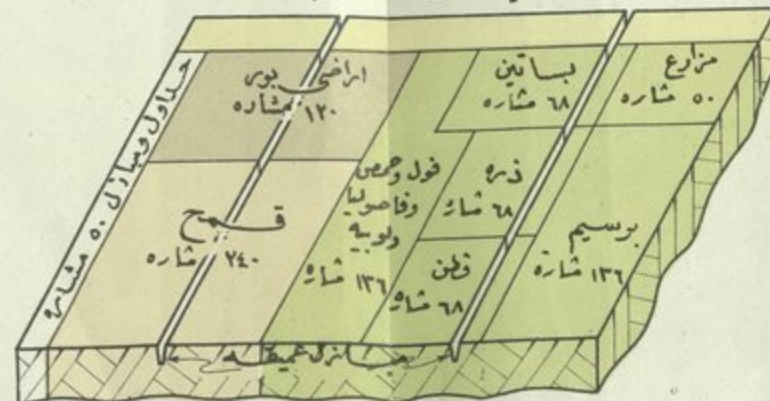 مزارع
٥٠ مشاره
بساتين
٦٨ مشاره
اراضي بور
١٢٠ مشاره
جداول ومبازل ٥٠ مشاره
ذره
٦٨ مشاره
فول وحمص
وفاصوليا
ولوبيه
١٣٦ مشاره
برسيم
١٣٦ مشارة
قطن
٦٨ مشاره
قمح
٢٤٠ مشاره
مبازل عميقه